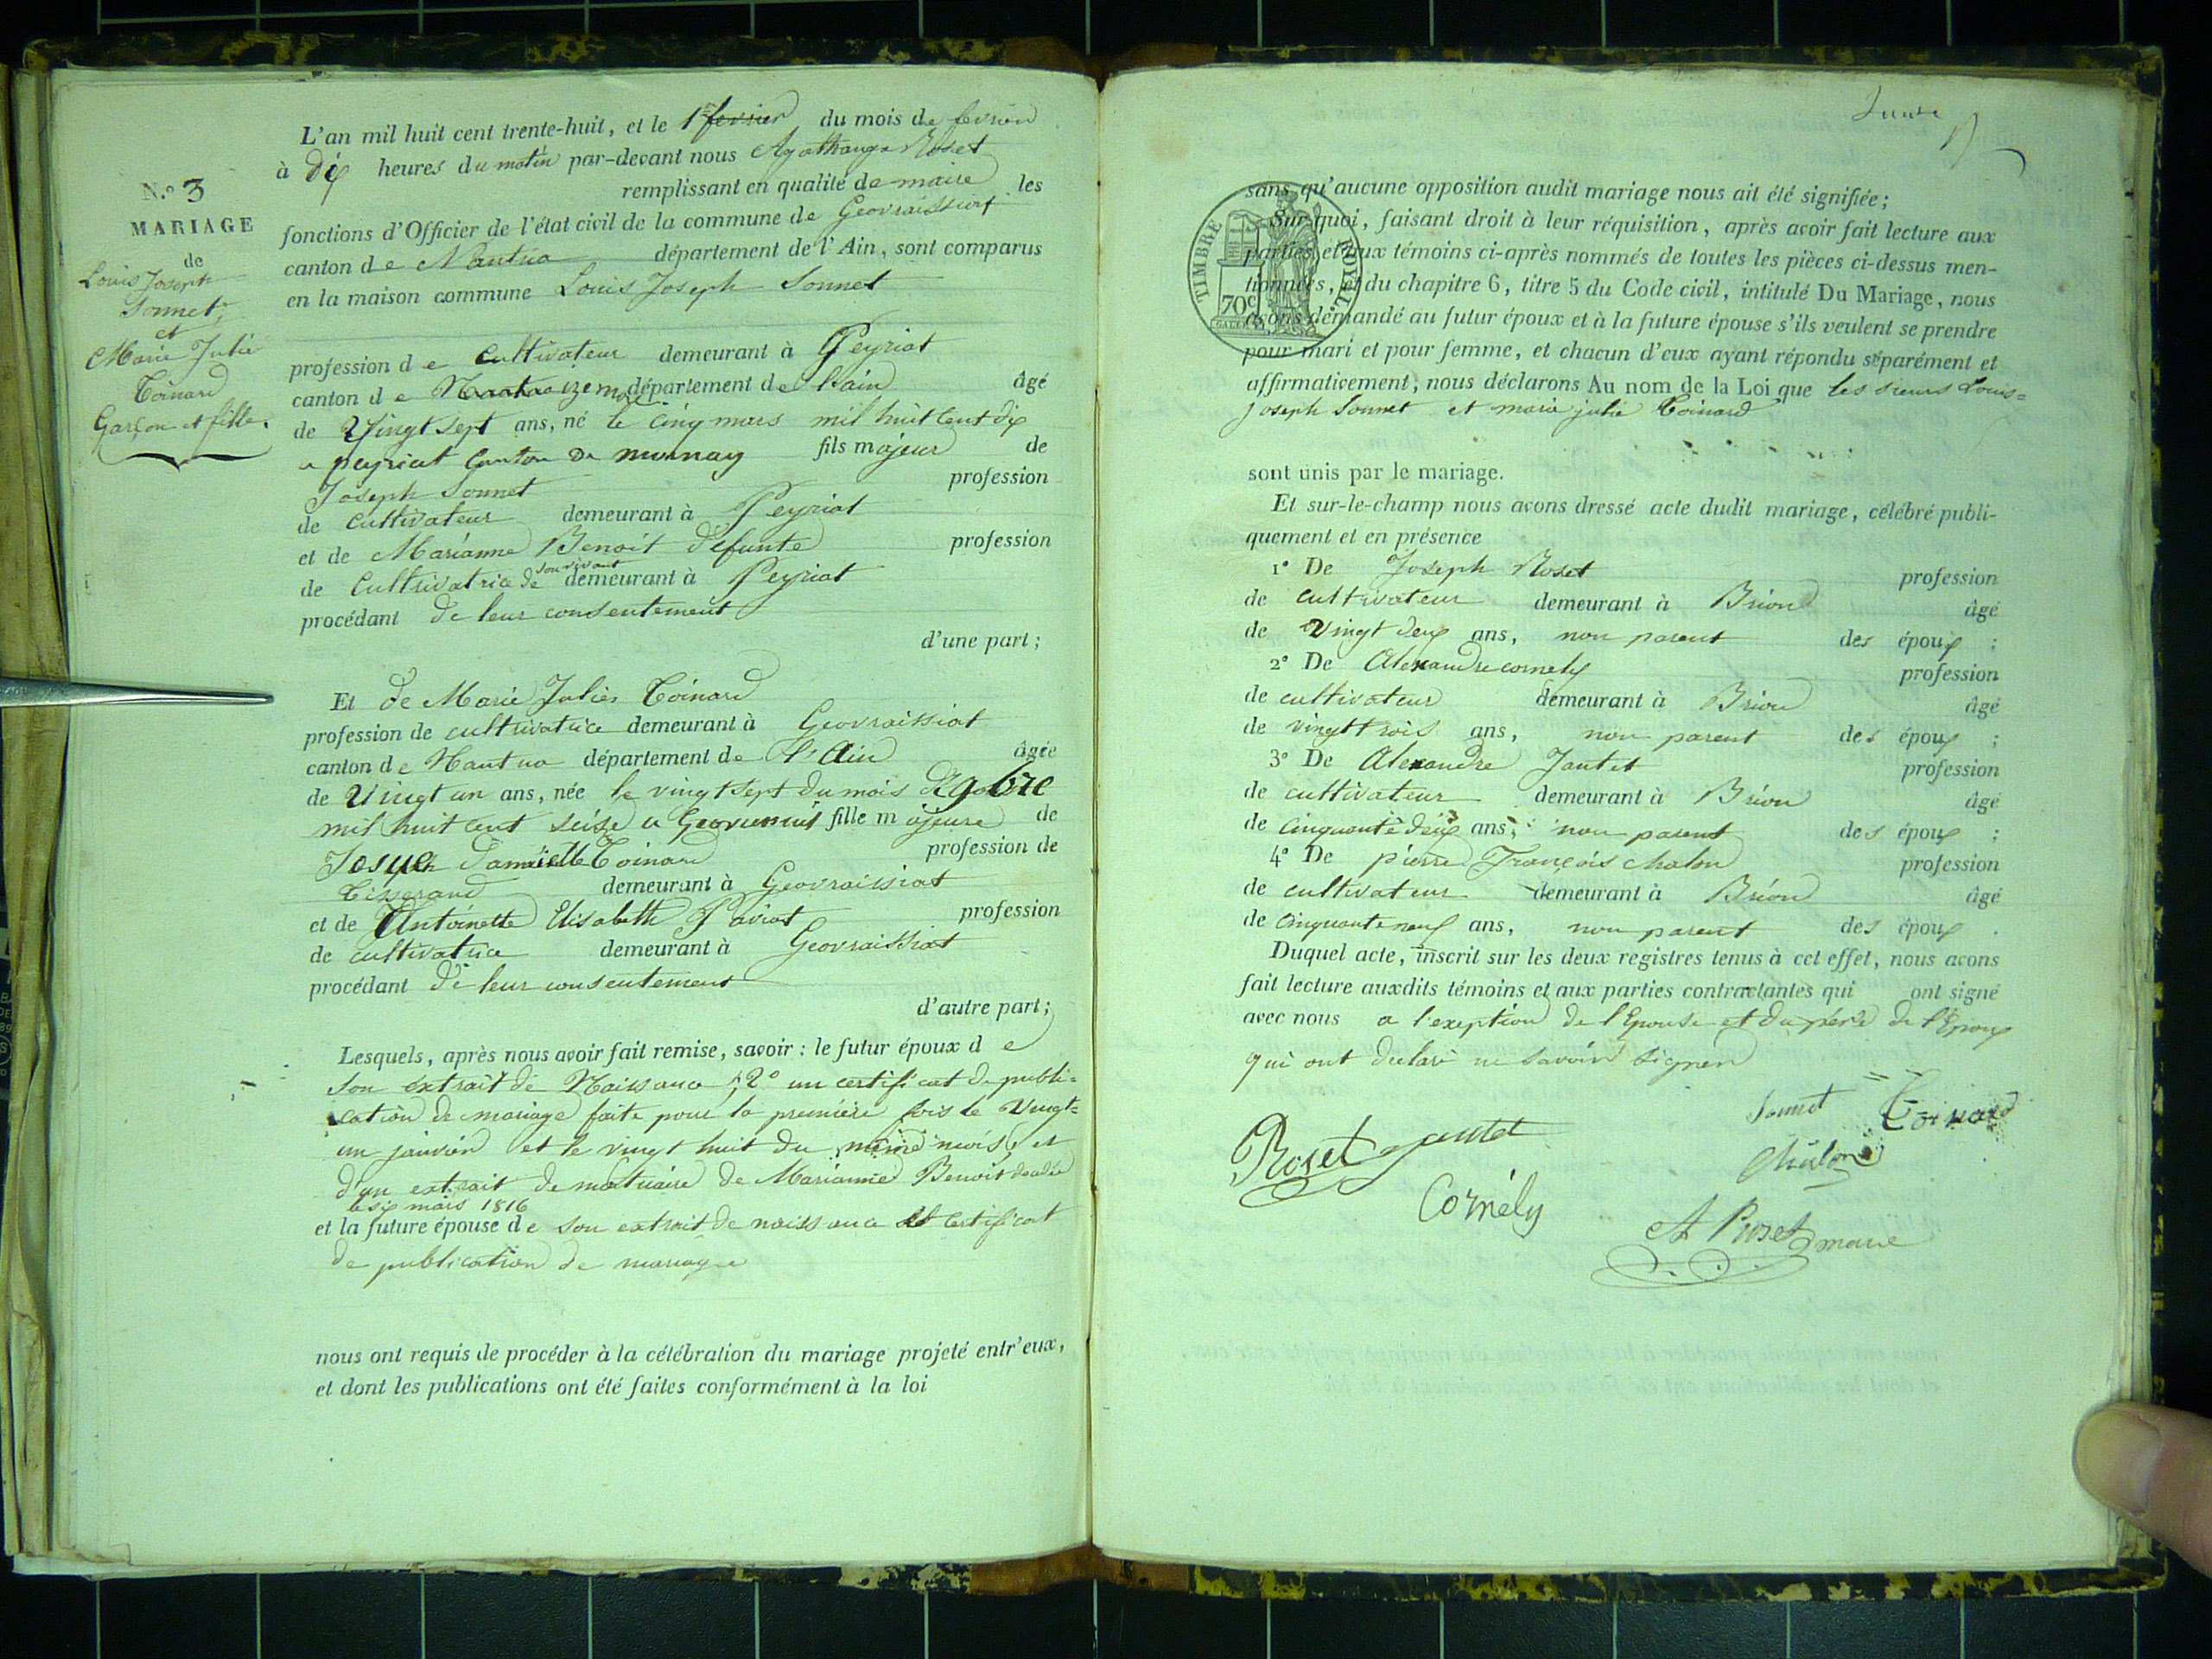 N.º 3
MARIAGE
de
Louis Joseph
Sonnet,
et
Marie Julie
Coinard
Garçon et fille.
L'an mil huit cent trente-huit, et le 1er fevrier du mois de fevrier
à dix heures du matin par-devant nous Agathange Roset
remplissant en qualité de maire les
fonctions d'Officier de l'état civil de la commune de Geovraissiat
canton de Nantua département de l'Ain, sont comparus
en la maison commune Louis Joseph Sonnet
profession de cultivateur demeurant à Peyriat
canton de izernore département de l'ain âgé
de Vingt sept ans, né le cinq mars mil huit cent dix
a peyriat canton de mornay fils majeur de
Joseph Sonnet profession
de cultivateur demeurant à Peyriat
et de Marianne Benoit défunte profession
de Cultivatrice de son vivant demeurant à Peyriat
procédant de leur consentement
d'une part;
Et de Marie Julie Coinard
profession de cultivatrice demeurant à Geovraissiat
canton de Nantua département de l'Ain âgée
de Vingt un ans, née le vingt sept du mois de 9bre
mil huit cent seize a fille majeure de
Josue Coinard profession de
Tisserand demeurant à Geovraissiat
et de Antoinette Elisabeth Paviot profession
de cultivatrice demeurant à Geovraissiat
procédant de leur consentement
d'autre part;
Lesquels, après nous avoir fait remise, savoir: le futur époux de
son extrait de Naissance, 2º un certificat de publi=
cation de mariage faite pour la première fois le Vingt=
un janvier et le vingt huit du même mois, et
d'un extrait de mortuaire de Marianne Benoit décédée
le six mars 1816
et la future épouse de son extrait de naissance et certificat
de publication de mariage
nous ont requis de procéder à la célébration du mariage projeté entr'eux,
et dont les publications ont été faites conformément à la loi
TIMBRE ROYAL
70c
sans qu'aucune opposition audit mariage nous ait été signifiée;
Sur quoi, faisant droit à leur réquisition, après avoir fait lecture aux
parties et aux témoins ci-après nommés de toutes les pièces ci-dessus men-
tionnées, et du chapitre 6, titre 5 du Code civil, intitulé Du Mariage, nous
avons demandé au futur époux et à la future épouse s'ils veulent se prendre
pour mari et pour femme, et chacun d'eux ayant répondu séparément et
affirmativement, nous déclarons Au nom de la Loi que les sieurs Louis=
joseph Sonnet et marie julie Coinard
sont unis par le mariage.
Et sur-le-champ nous avons dressé acte dudit mariage, célébré publi-
quement et en présence
1º De Joseph Roset profession
de cultivateur demeurant à Brion âgé
de Vingt deux ans, non parent des époux ;
2º De Alexandre cornely profession
de cultivateur demeurant à Brion âgé
de vingt trois ans, non parent des époux ;
3º De Alexandre Jantet profession
de cultivateur demeurant à Brion âgé
de cinquante deux ans, non parent des époux ;
4º De pierre François chalon profession
de cultivateur demeurant à Brion âgé
de cinquante neuf ans, non parent des époux .
Duquel acte, inscrit sur les deux registres tenus à cet effet, nous avons
fait lecture auxdits témoins et aux parties contractantes qui ont signé
avec nous a l'exeption de l'Epouse et du père de l'Epoux
qui ont declaré ne savoir signer
Sonnet Coinard
Roset jantet
Chalon
Cornély
A Roset maire